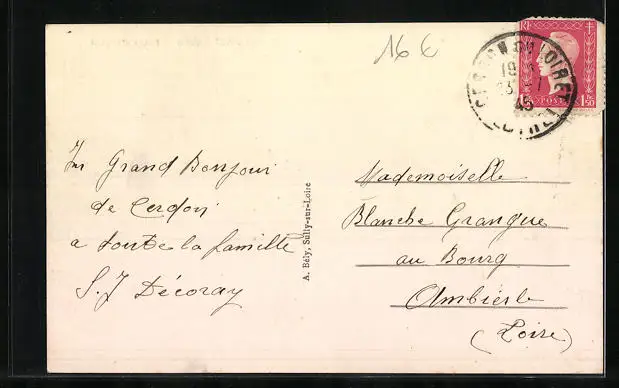 16 €
CERDON DU LOIRET
19
45
LOIRET
RF
POSTES 1F50
Un Grand Bonjour
de Cerdon
a toute la famille
S.J Décoray
A. Bély, Sully-sur-Loire
Mademoiselle
Blanche Grangue
au Bourg
Ambierle
(Loire)